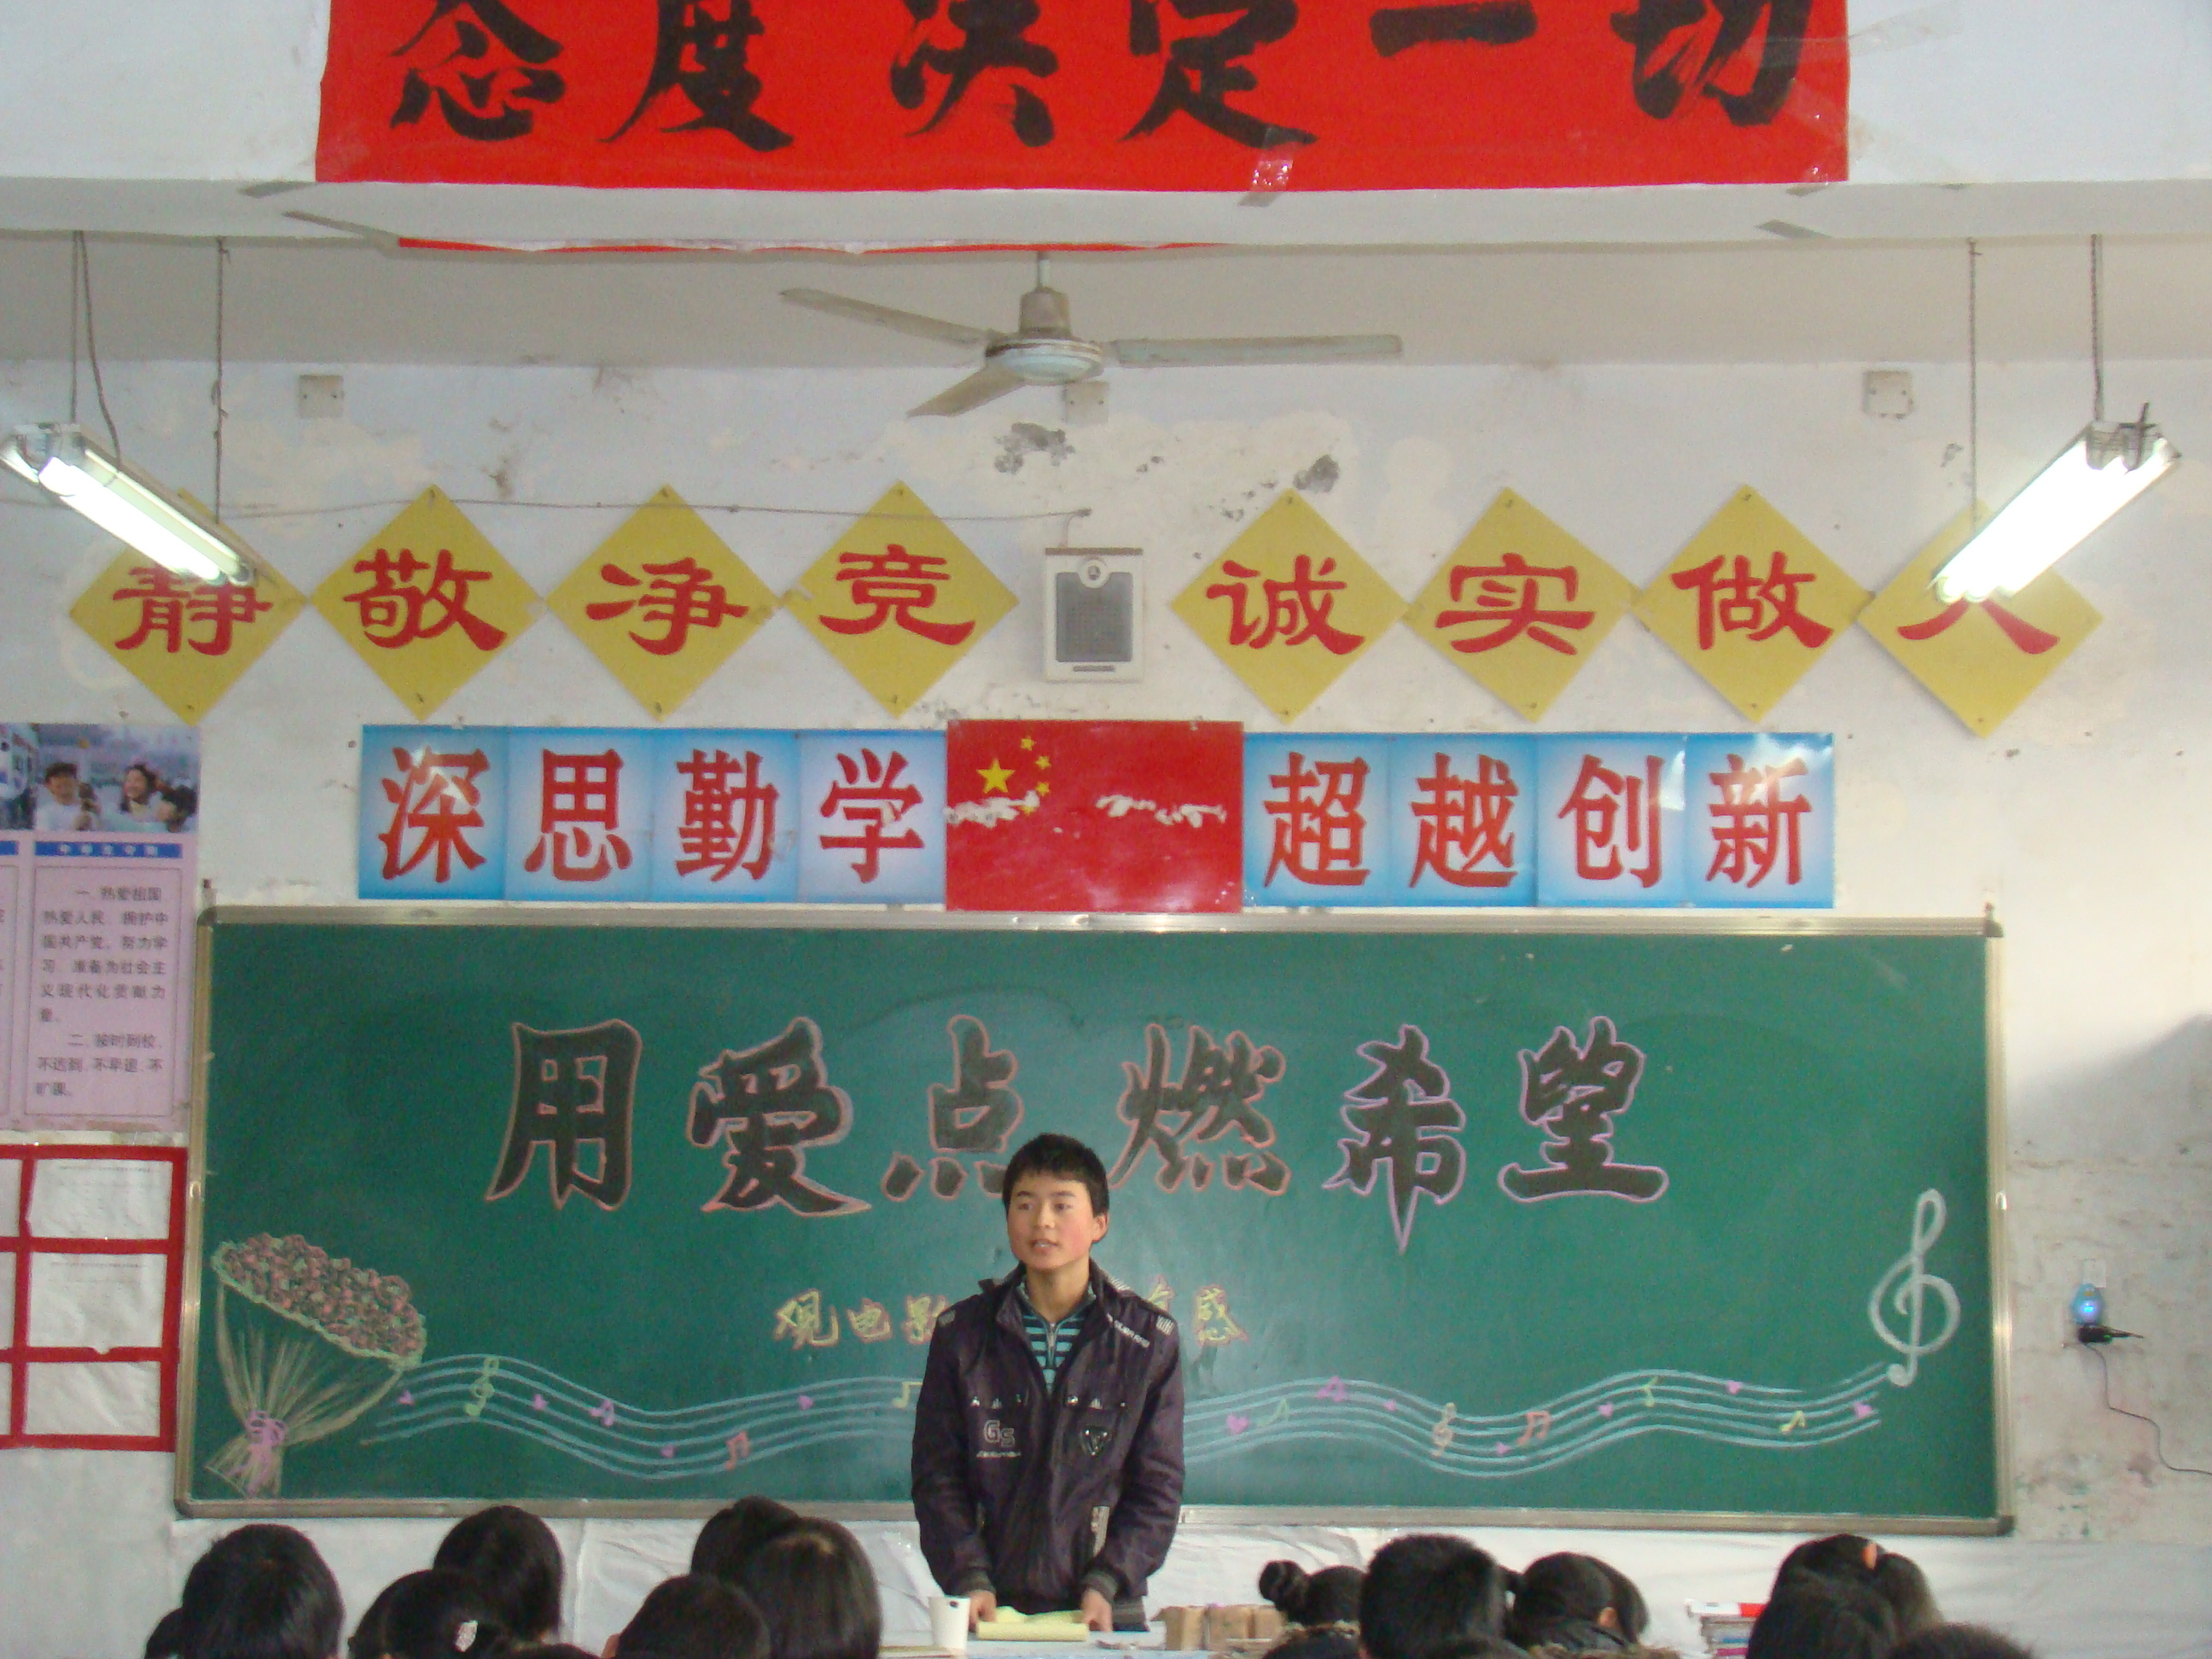 态度决定一切
静敬净竞 诚实做人
深思勤学 超越创新
中学生守则
一、热爱祖国，
热爱人民，拥护中
国共产党，努力学
习，准备为社会主
义现代化贡献力
量。
二、按时到校，
不迟到，不早退，不
旷课。
用爱点燃希望
观电影 感
GS